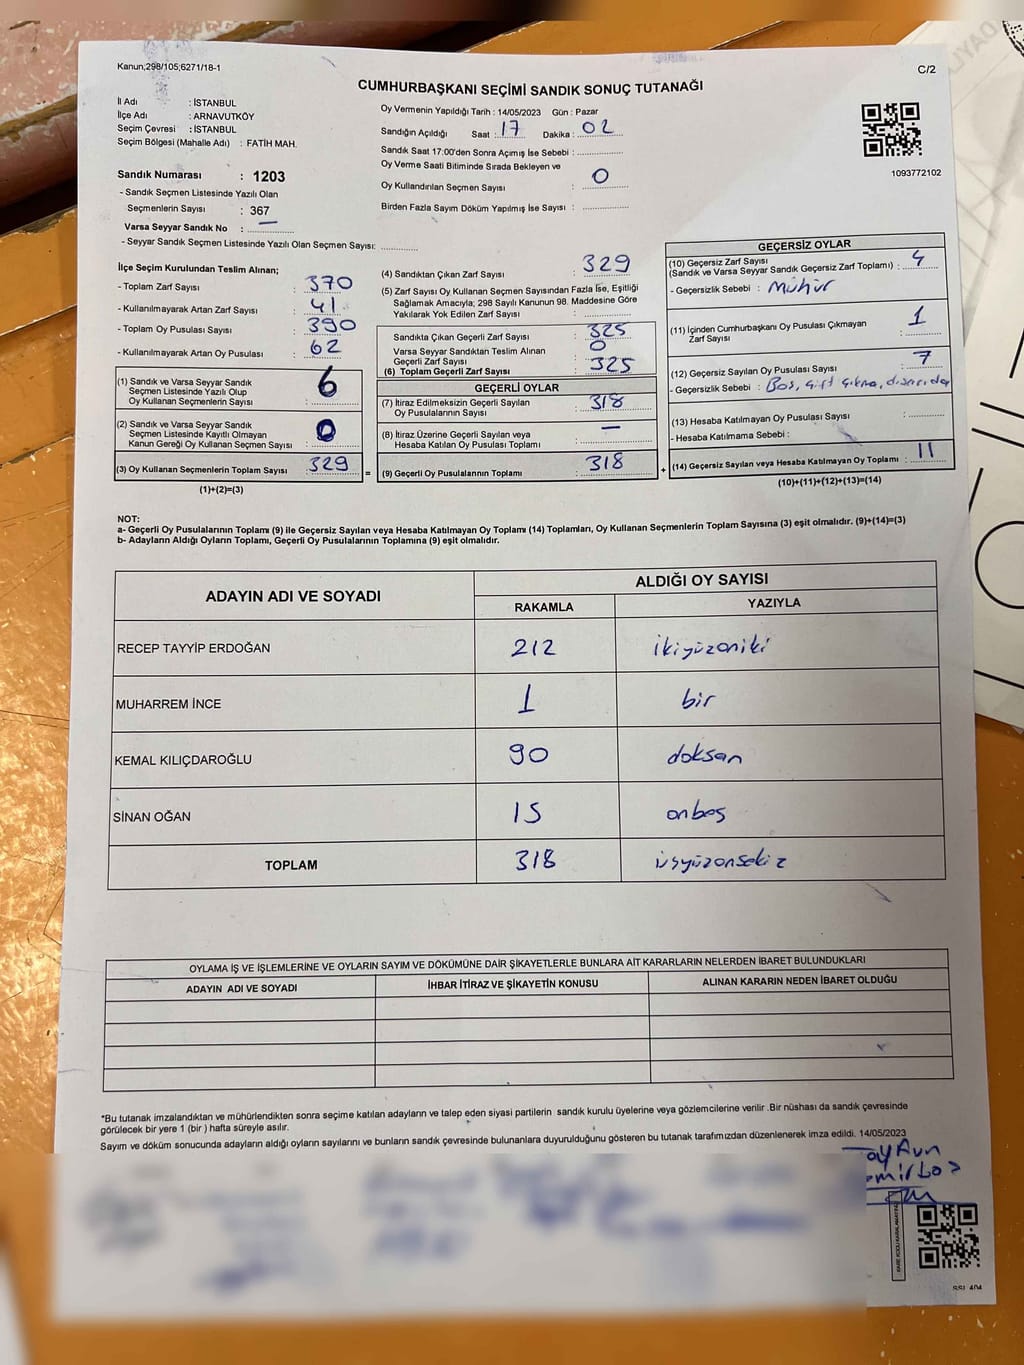 Kanun;298/105;6271/18-1
C/2
CUMHURBAŞKANI SEÇİMİ SANDIK SONUÇ TUTANAĞI
İl Adı : İSTANBUL
İlçe Adı : ARNAVUTKÖY
Seçim Çevresi : İSTANBUL
Seçim Bölgesi (Mahalle Adı) : FATİH MAH.
Oy Vermenin Yapıldığı Tarih : 14/05/2023 Gün : Pazar
Sandığın Açıldığı Saat : 17 Dakika : 02
Sandık Saat 17:00'den Sonra Açımış İse Sebebi :
Oy Verme Saati Bitiminde Sırada Bekleyen ve
Oy Kullandırılan Seçmen Sayısı : 0
Birden Fazla Sayım Döküm Yapılmış İse Sayısı :
1093772102
Sandık Numarası : 1203
- Sandık Seçmen Listesinde Yazılı Olan
Seçmenlerin Sayısı : 367
Varsa Seyyar Sandık No : —
- Seyyar Sandık Seçmen Listesinde Yazılı Olan Seçmen Sayısı:
İlçe Seçim Kurulundan Teslim Alınan;
- Toplam Zarf Sayısı : 370
- Kullanılmayarak Artan Zarf Sayısı : 41
- Toplam Oy Pusulası Sayısı : 390
- Kullanılmayarak Artan Oy Pusulası : 62
(1) Sandık ve Varsa Seyyar Sandık
Seçmen Listesinde Yazılı Olup
Oy Kullanan Seçmenlerin Sayısı : 6
(2) Sandık ve Varsa Seyyar Sandık
Seçmen Listesinde Kayıtlı Olmayan
Kanun Gereği Oy Kullanan Seçmen Sayısı : 0
(3) Oy Kullanan Seçmenlerin Toplam Sayısı : 329
(1)+(2)=(3)
=
(4) Sandıktan Çıkan Zarf Sayısı : 329
(5) Zarf Sayısı Oy Kullanan Seçmen Sayısından Fazla İse, Eşitliği
Sağlamak Amacıyla; 298 Sayılı Kanunun 98. Maddesine Göre
Yakılarak Yok Edilen Zarf Sayısı :
Sandıkta Çıkan Geçerli Zarf Sayısı : 325
Varsa Seyyar Sandıktan Teslim Alınan
Geçerli Zarf Sayısı : 0
(6) Toplam Geçerli Zarf Sayısı : 325
GEÇERLİ OYLAR
(7) İtiraz Edilmeksizin Geçerli Sayılan
Oy Pusulalarının Sayısı : 318
(8) İtiraz Üzerine Geçerli Sayılan veya
Hesaba Katılan Oy Pusulası Toplamı : —
(9) Geçerli Oy Pusulalarının Toplamı : 318
+
GEÇERSİZ OYLAR
(10) Geçersiz Zarf Sayısı
(Sandık ve Varsa Seyyar Sandık Geçersiz Zarf Toplamı) : 4
- Geçersizlik Sebebi : Mühür
(11) İçinden Cumhurbaşkanı Oy Pusulası Çıkmayan
Zarf Sayısı : 1
(12) Geçersiz Sayılan Oy Pusulası Sayısı : 7
- Geçersizlik Sebebi : Boş, çift çıkma, dışarıdan
(13) Hesaba Katılmayan Oy Pusulası Sayısı :
- Hesaba Katılmama Sebebi :
(14) Geçersiz Sayılan veya Hesaba Katılmayan Oy Toplamı : 11
(10)+(11)+(12)+(13)=(14)
NOT:
a- Geçerli Oy Pusulalarının Toplamı (9) ile Geçersiz Sayılan veya Hesaba Katılmayan Oy Toplamı (14) Toplamları, Oy Kullanan Seçmenlerin Toplam Sayısına (3) eşit olmalıdır. (9)+(14)=(3)
b- Adayların Aldığı Oyların Toplamı, Geçerli Oy Pusulalarının Toplamına (9) eşit olmalıdır.
ADAYIN ADI VE SOYADI
ALDIĞI OY SAYISI
RAKAMLA YAZIYLA
RECEP TAYYİP ERDOĞAN 212 ikiyüzoniki
MUHARREM İNCE 1 bir
KEMAL KILIÇDAROĞLU 90 doksan
SİNAN OĞAN 15 onbeş
TOPLAM 318 üçyüzonsekiz
OYLAMA İŞ VE İŞLEMLERİNE VE OYLARIN SAYIM VE DÖKÜMÜNE DAİR ŞİKAYETLERLE BUNLARA AİT KARARLARIN NELERDEN İBARET BULUNDUKLARI
ADAYIN ADI VE SOYADI İHBAR İTİRAZ VE ŞİKAYETİN KONUSU ALINAN KARARIN NEDEN İBARET OLDUĞU
*Bu tutanak imzalandıktan ve mühürlendikten sonra seçime katılan adayların ve talep eden siyasi partilerin sandık kurulu üyelerine veya gözlemcilerine verilir .Bir nüshası da sandık çevresinde
görülecek bir yere 1 (bir ) hafta süreyle asılır.
Sayım ve döküm sonucunda adayların aldığı oyların sayılarını ve bunların sandık çevresinde bulunanlara duyurulduğunu gösteren bu tutanak tarafımızdan düzenlenerek imza edildi. 14/05/2023